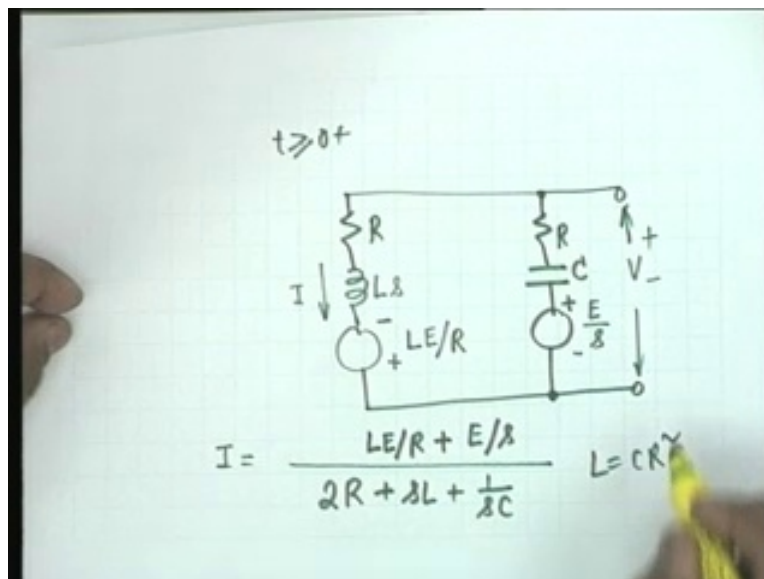 t ≥ 0+
R
R
I
Ls
C
+
V
-
-
+
LE/R
+
E/s
-
I = (LE/R + E/s) / (2R + sL + 1/sC)
L = CR²